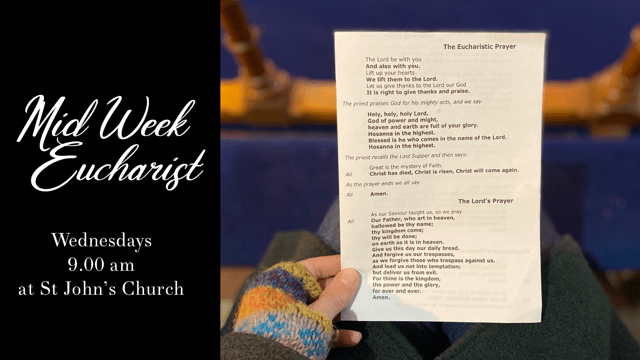 Mid Week
Eucharist
Wednesdays
9.00 am
at St John's Church
The Eucharistic Prayer
The Lord be with you
And also with you.
Lift up your hearts
We lift them to the Lord.
Let us give thanks to the Lord our God
It is right to give thanks and praise.
The priest praises God for his mighty acts, and we say
Holy, holy, holy Lord,
God of power and might,
heaven and earth are full of your glory.
Hosanna in the highest.
Blessed is he who comes in the name of the Lord.
Hosanna in the highest.
The priest recalls the Last Supper and then says:
Great is the mystery of Faith.
All Christ has died, Christ is risen, Christ will come again.
As the prayer ends we all say
All Amen.
The Lord's Prayer
As our Saviour taught us, so we pray
All Our Father, who art in heaven,
hallowed be thy name;
thy kingdom come;
thy will be done;
on earth as it is in heaven.
Give us this day our daily bread.
And forgive us our trespasses,
as we forgive those who trespass against us.
And lead us not into temptation;
but deliver us from evil.
For thine is the kingdom,
the power and the glory,
for ever and ever.
Amen.